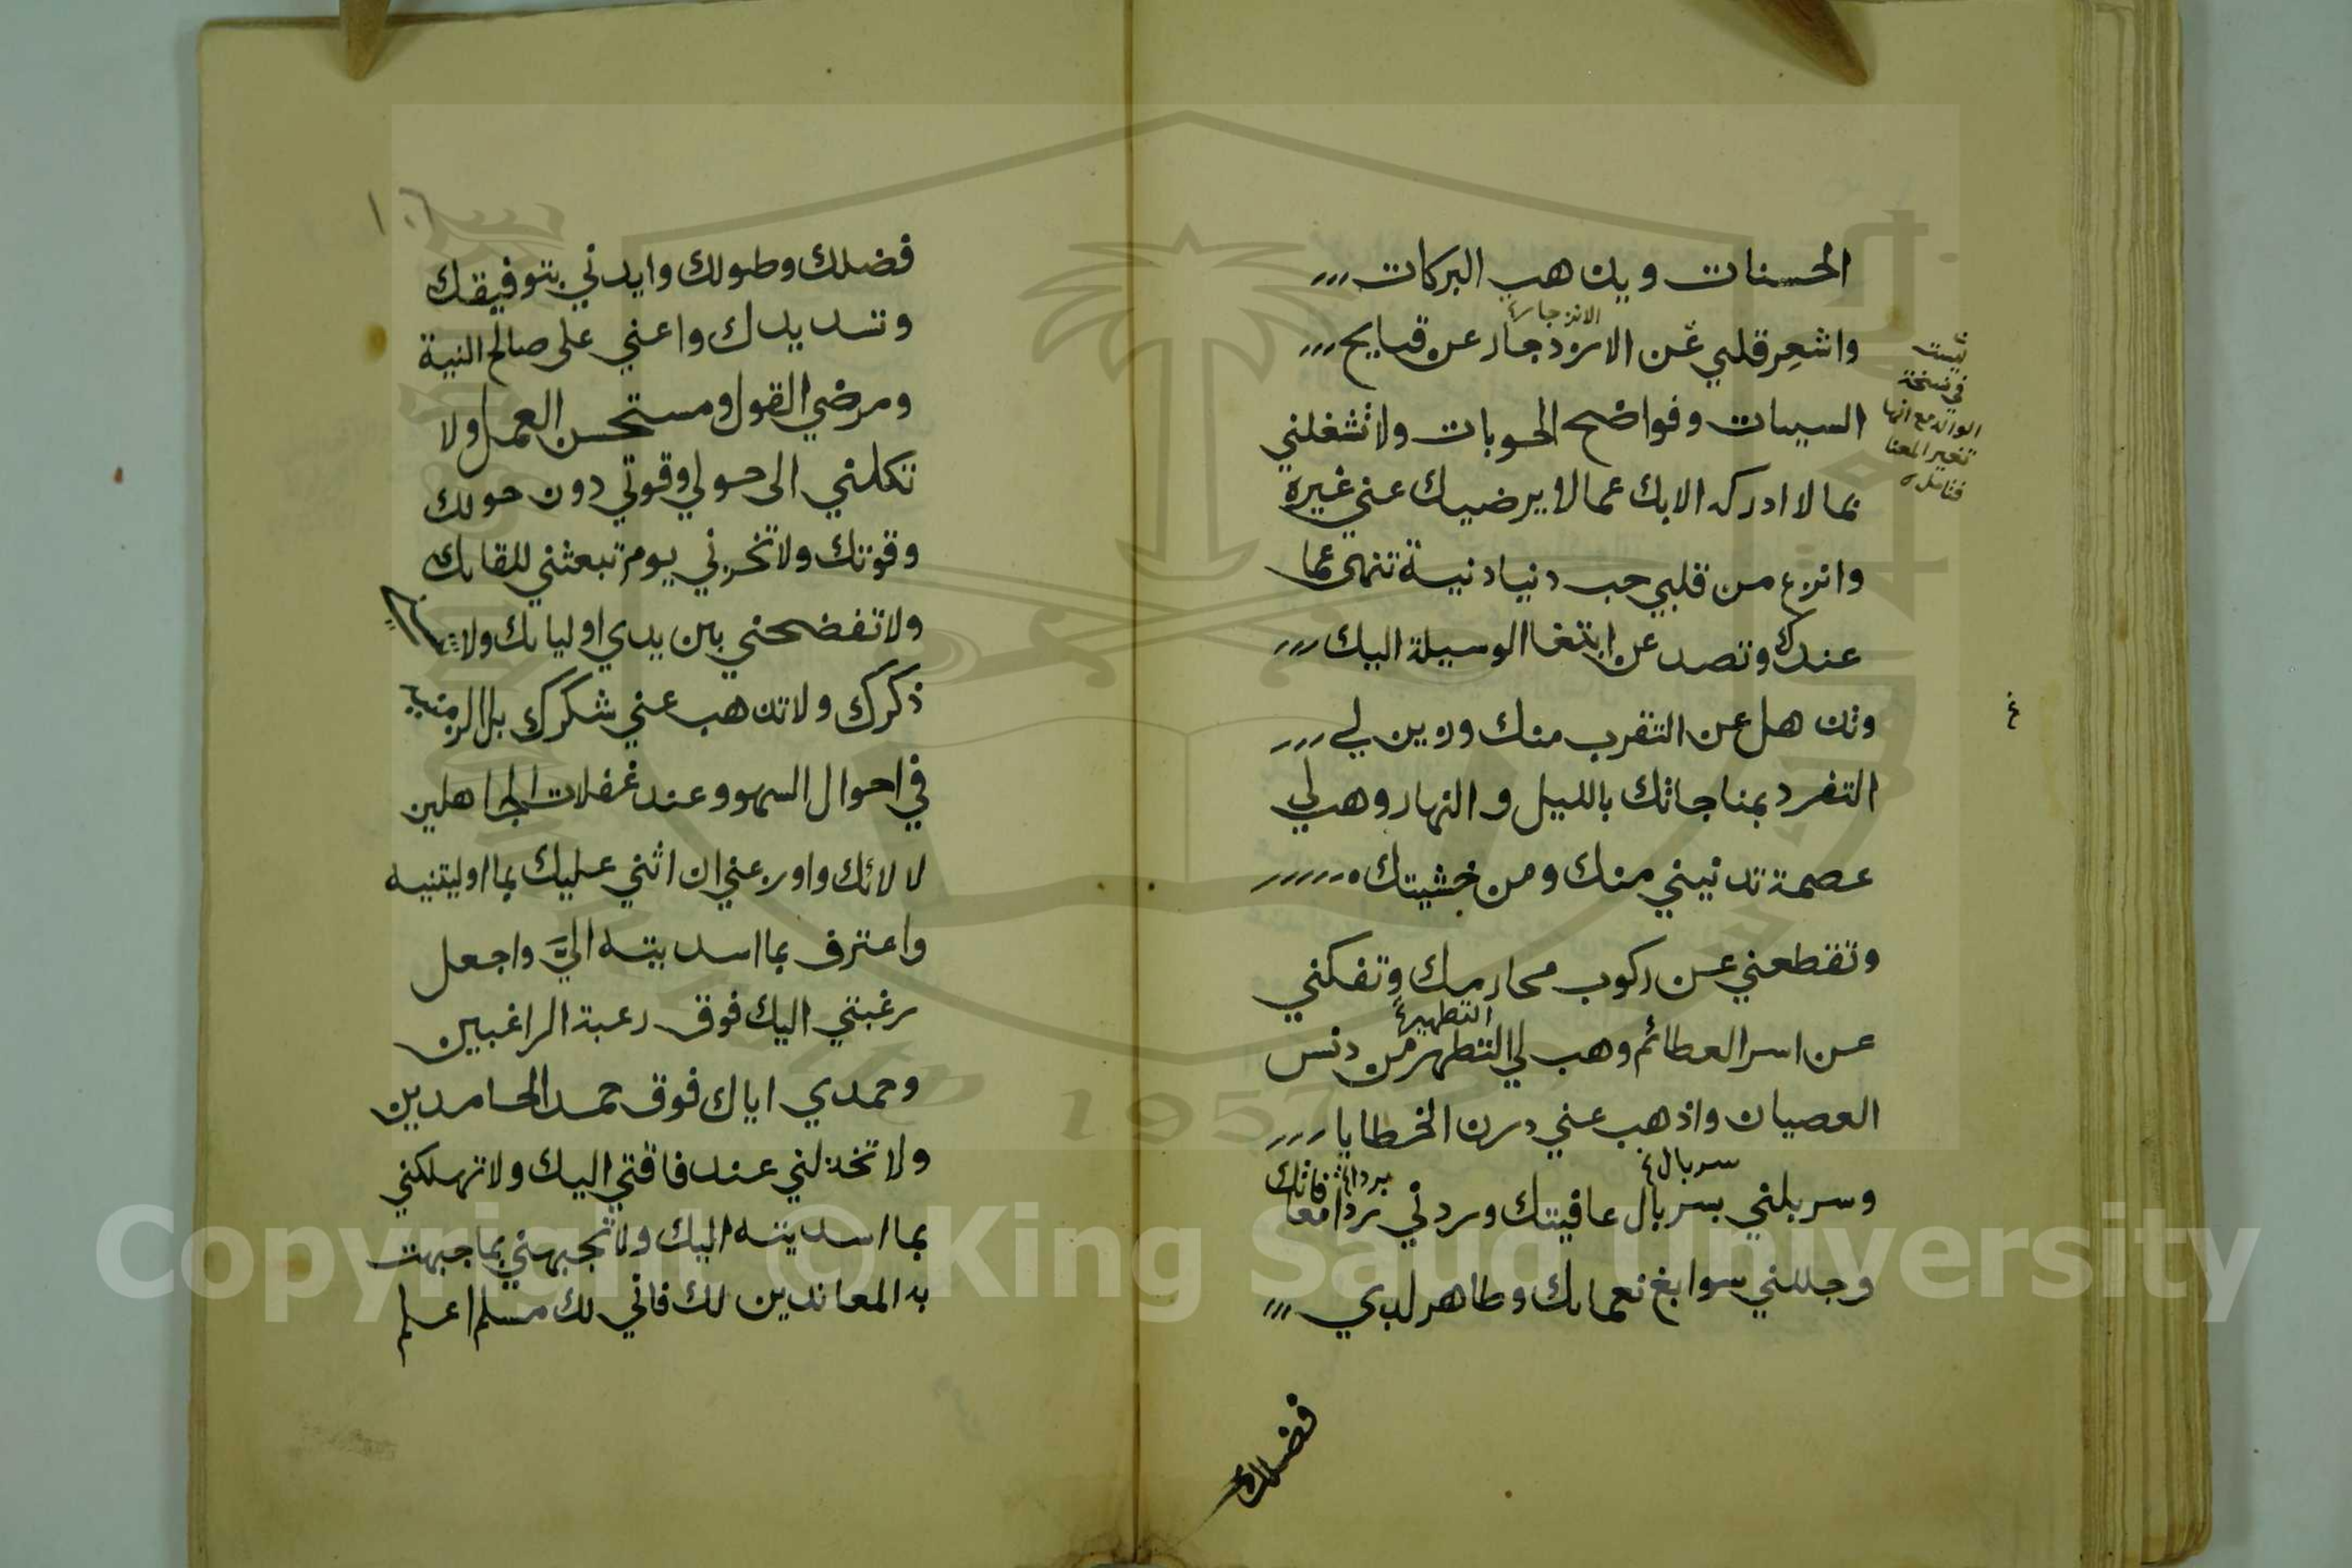 الحسنات ويذهب البركات
الازجار
واشعر قلبي عن الازدجار عن قبايح
السيىات وفواضح الحوبات ولا تشغلني
بما لا ادركه الا بك عما لا يرضيك عني غيره
وانزع من قلبي حب دنيا دنية تنهى عما
عندك وتصد عن ابتغا الوسيلة اليك
وتذهل عن التقرب منك وزين لي
التفرد بمناجاتك بالليل والنهار وهب لي
عصمة تدنيني منك ومن خشيتك
وتقطعني عن ركوب محارمك وتفكني
التطهير
عن اسر العطائم وهب لي التطهر من دنس
العصيان واذهب عني درن الخطايا
سربال
وسربلني بسربال عافيتك وردني ردا معا
فاتك
وجللني سوابغ نعمائك وطاهر لدي
فضلك
ليست
في نسخة
الوالد مع انها
تغير المعنا
فتامل
١٠٦
فضلك وطولك وايدني بتوفيقك
وتسديدك واعني على صالح النية
ومرضي القول ومستحسن العمل ولا
تكلني الى حولي وقوتي دون حولك
وقوتك ولا تخزني يوم تبعثني للقائك
ولا تفضحني بين يدي اوليائك ولا
ذكرك ولا تذهب عني شكرك بل الزمنيه
في احوال السهو وعند غفلات الجاهلين
لا لائك واوزعني ان اثني عليك بما اوليتنيه
واعترف بما اسديته اليَّ واجعل
رغبتي اليك فوق رعبة الراغبين
وحمدي اياك فوق حمد الحامدين
ولا تخذلني عند فاقتي اليك ولا تهلكني
بما اسديته اليك ولا تجبهني بما جبهت
به المعاندين لك فاني لك مسلم اعلم
Copyright © King Saud University
1957